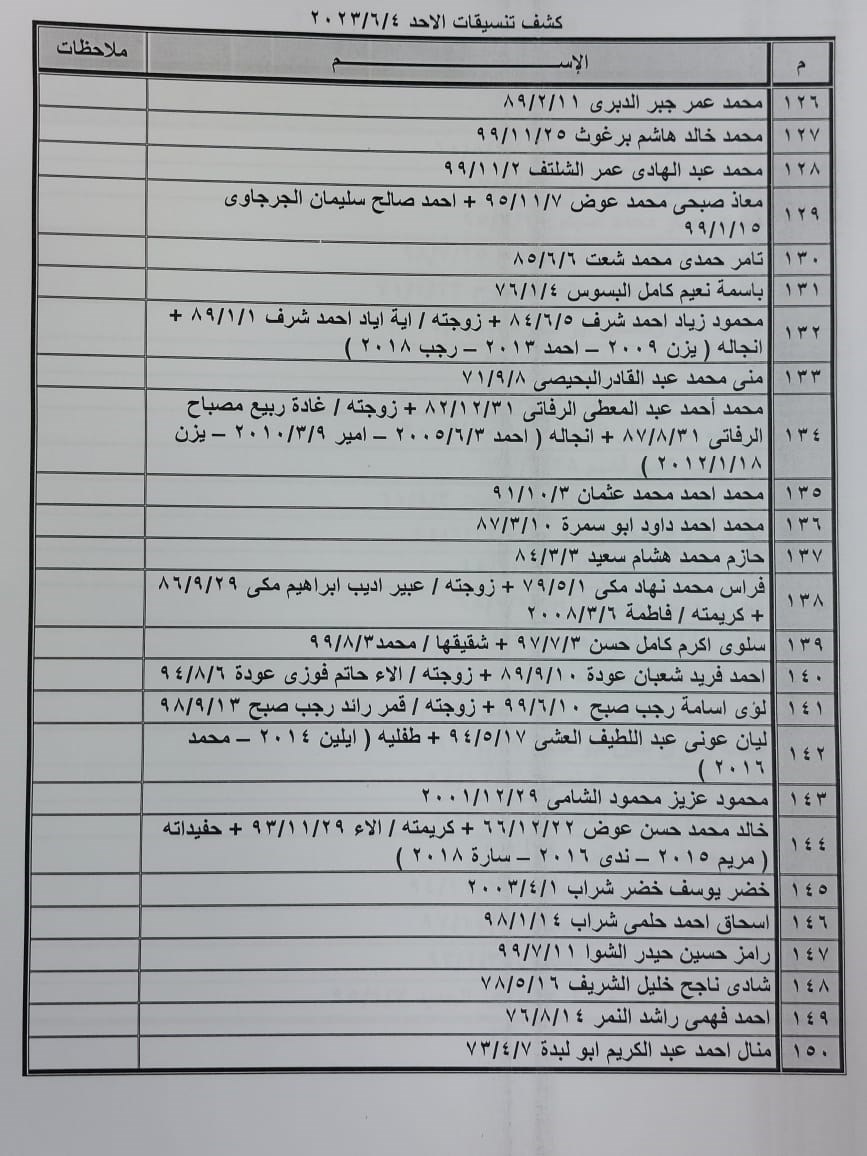 كشف تنسيقات الاحد ٢٠٢٣/٦/٤
م الإســـــــم ملاحظات
١٢٦ محمد عمر جبر الدبرى ٨٩/٢/١١
١٢٧ محمد خالد هاشم برغوث ٩٩/١١/٢٥
١٢٨ محمد عبد الهادى عمر الشلتف ٩٩/١١/٢
١٢٩ معاذ صبحى محمد عوض ٩٥/١١/٧ + احمد صالح سليمان الجرجاوى
٩٩/١/١٥
١٣٠ تامر حمدى محمد شعت ٨٥/٦/٦
١٣١ باسمة نعيم كامل البسوس ٧٦/١/٤
١٣٢ محمود زياد احمد شرف ٨٤/٦/٥ + زوجته / اية اياد احمد شرف ٨٩/١/١ +
انجاله ( يزن ٢٠٠٩ – احمد ٢٠١٣ – رجب ٢٠١٨ )
١٣٣ منى محمد عبد القادرالبحيصى ٧١/٩/٨
١٣٤ محمد أحمد عبد المعطى الرفاتى ٨٢/١٢/٣١ + زوجته / غادة ربيع مصباح
الرفاتى ٨٧/٨/٣١ + انجاله ( احمد ٢٠٠٥/٦/٣ – امير ٢٠١٠/٣/٩ – يزن
٢٠١٢/١/١٨ )
١٣٥ محمد احمد محمد عثمان ٩١/١٠/٣
١٣٦ محمد احمد داود ابو سمرة ٨٧/٣/١٠
١٣٧ حازم محمد هشام سعيد ٨٤/٣/٣
١٣٨ فراس محمد نهاد مكى ٧٩/٥/١ + زوجته / عبير اديب ابراهيم مكى ٨٦/٩/٢٩
+ كريمته / فاطمة ٢٠٠٨/٣/٦
١٣٩ سلوى اكرم كامل حسن ٩٧/٧/٣ + شقيقها / محمد٩٩/٨/٣
١٤٠ احمد فريد شعبان عودة ٨٩/٩/١٠ + زوجته / الاء حاتم فوزى عودة ٩٤/٨/٦
١٤١ لؤى اسامة رجب صبح ٩٩/٦/١٠ + زوجته / قمر رائد رجب صبح ٩٨/٩/١٣
١٤٢ ليان عونى عبد اللطيف العشى ٩٤/٥/١٧ + طفليه ( ايلين ٢٠١٤ – محمد
٢٠١٦ )
١٤٣ محمود عزيز محمود الشامى ٢٠٠١/١٢/٢٩
١٤٤ خالد محمد حسن عوض ٦٦/١٢/٢٢ + كريمته / الاء ٩٣/١١/٢٩ + حفيداته
( مريم ٢٠١٥ – ندى ٢٠١٦ – سارة ٢٠١٨ )
١٤٥ خضر يوسف خضر شراب ٢٠٠٣/٤/١
١٤٦ اسحاق احمد حلمى شراب ٩٨/١/١٤
١٤٧ رامز حسين حيدر الشوا ٩٩/٧/١١
١٤٨ شادى ناجح خليل الشريف ٧٨/٥/١٦
١٤٩ احمد فهمى راشد النمر ٧٦/٨/١٤
١٥٠ منال احمد عبد الكريم ابو لبدة ٧٣/٤/٧